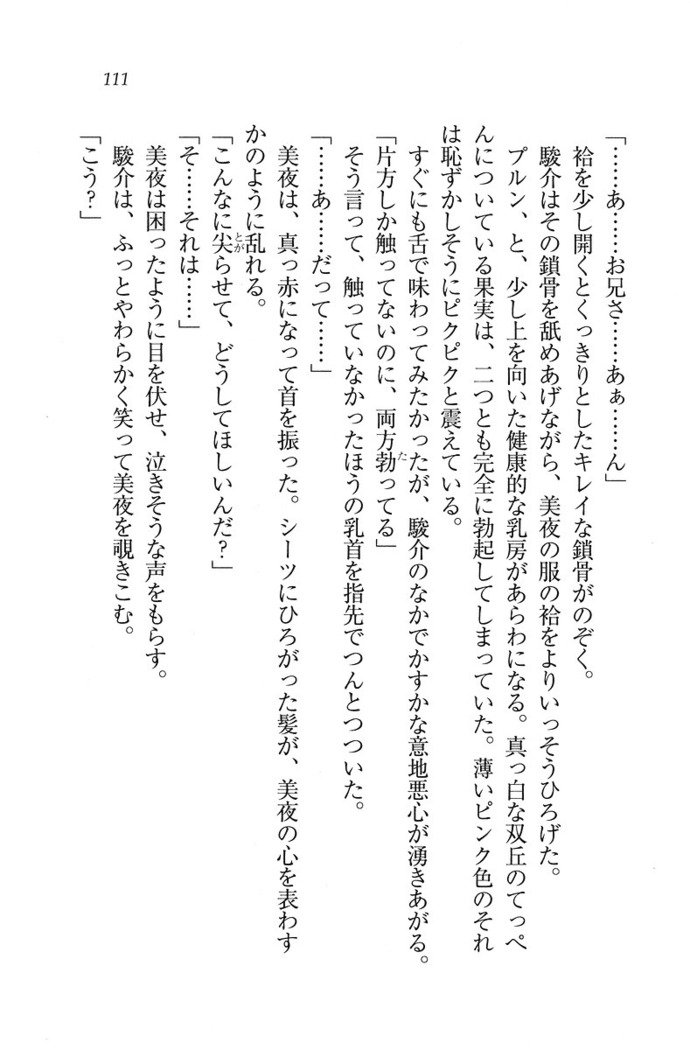 111
「……あ……お兄さ……あぁ……ん」
袷を少し開くとくっきりとしたキレイな鎖骨がのぞく。
駿介はその鎖骨を舐めあげながら、美夜の服の袷をよりいっそうひろげた。
プルン、と、少し上を向いた健康的な乳房があらわになる。真っ白な双丘のてっぺ
んについている果実は、二つとも完全に勃起してしまっていた。薄いピンク色のそれ
は恥ずかしそうにピクピクと震えている。
すぐにも舌で味わってみたかったが、駿介のなかでかすかな意地悪心が湧きあがる。
「片方しか触ってないのに、両方勃ってる」
そう言って、触っていなかったほうの乳首を指先でつんとつついた。
「……あ……だって……」
美夜は、真っ赤になって首を振った。シーツにひろがった髪が、美夜の心を表わす
かのように乱れる。
「こんなに尖らせて、どうしてほしいんだ？」
「そ……それは……」
美夜は困ったように目を伏せ、泣きそうな声をもらす。
駿介は、ふっとやわらかく笑って美夜を覗きこむ。
「こう？」